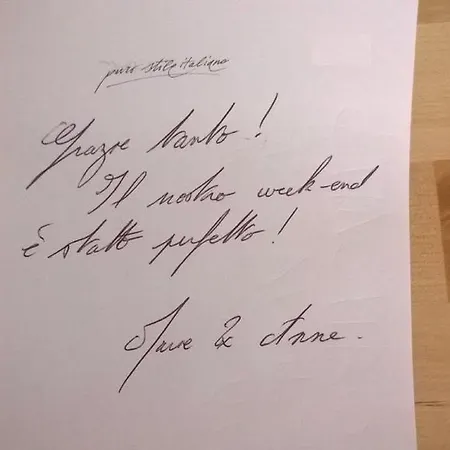 puro stile italiano
Grazie tanto!
Il nostro week-end
è statto perfetto!
& Anne.